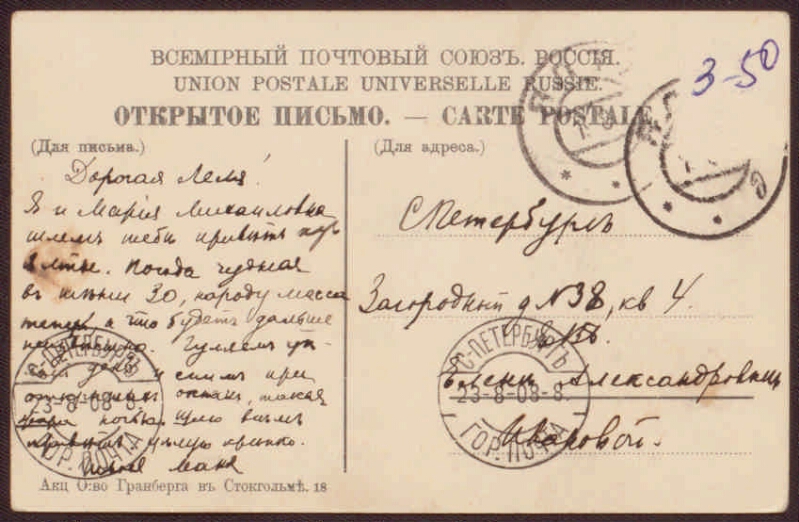 ВСЕМІРНЫЙ ПОЧТОВЫЙ СОЮЗЪ. РОССІЯ.
UNION POSTALE UNIVERSELLE RUSSIE.
ОТКРЫТОЕ ПИСЬМО. — CARTE POSTALE.
3-50
(Для письма.)
Дорогая Леля!
Я и Марія Михаиловна
шлемъ тебѣ привѣтъ изъ
Ялты. Погода чудная
въ тѣни 30, народу масса
теперь а что будетъ дальше
Гуляемъ
день и спимъ при
окнахъ, такая
цѣлую крѣпко.
Маня
(Для адреса.)
С Петербургъ
Загородный д N 38, кв 4.
Еленѣ Александровнѣ
С-ПЕТЕРБУРГЪ
23-8-08-8.
ГОР. ПОЧТА
С-ПЕТЕРБУРГЪ
23-8-08-8.
ГОР. ПОЧТА
Акц О-во Гранберга въ Стокгольмѣ. 18